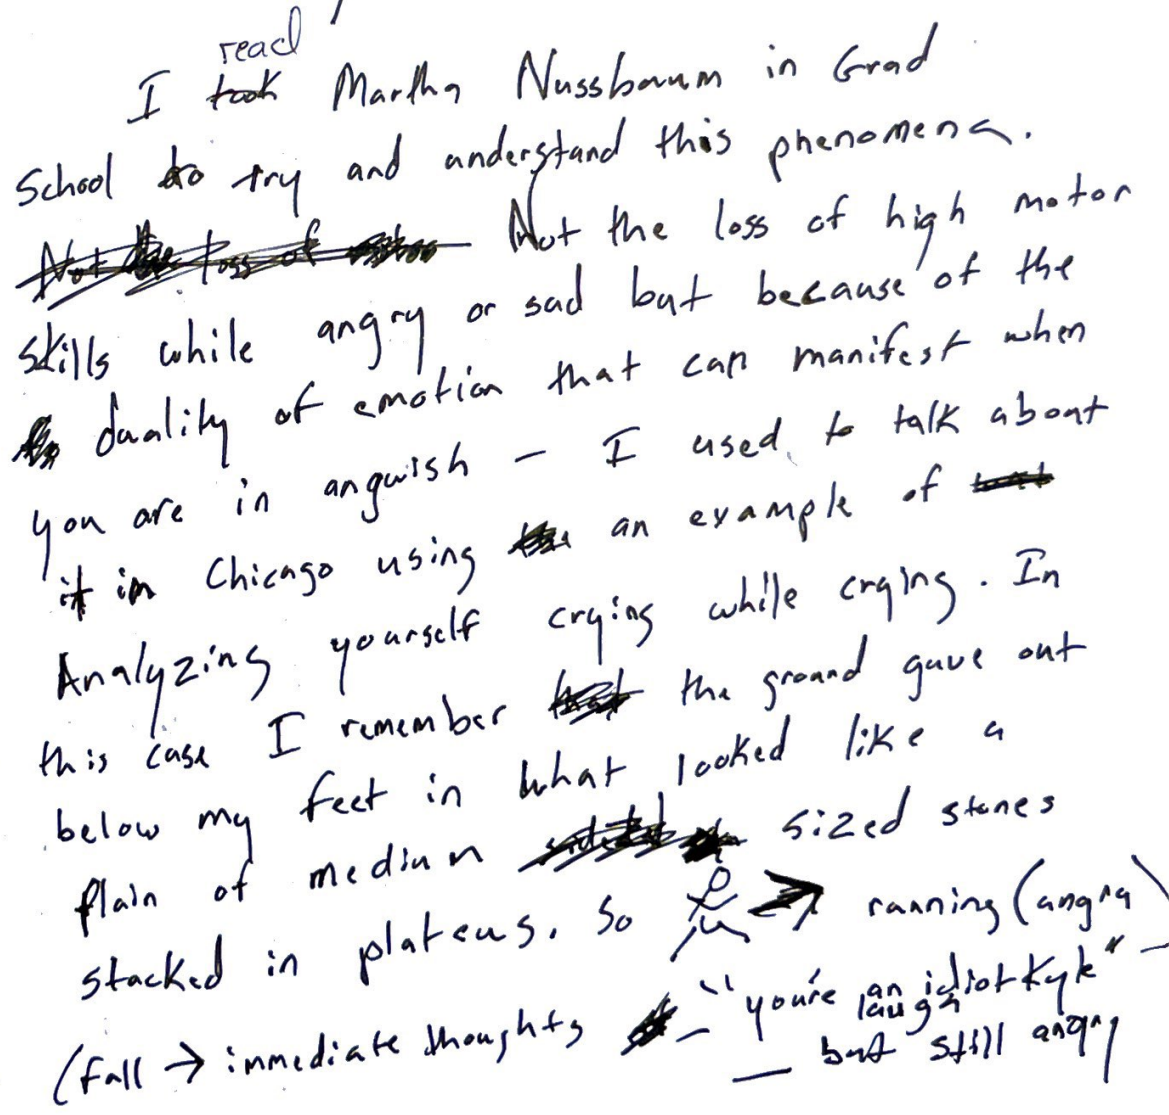 read
I took Martha Nussbaum in Grad
School to try and understand this phenomena.
Not the loss of Not the loss of high motor
skills while angry or sad but because of the
duality of emotion that can manifest when
you are in angwish – I used to talk about
it in Chicago using an example of
Analyzing yourself crying while crying. In
this case I remember the ground gave out
below my feet in what looked like a
plain of medium sized stones
stacked in plateus. So → running (angry)
(fall → immediate thoughts – "you're an idiot Kyle" –
laugh
— but still angry